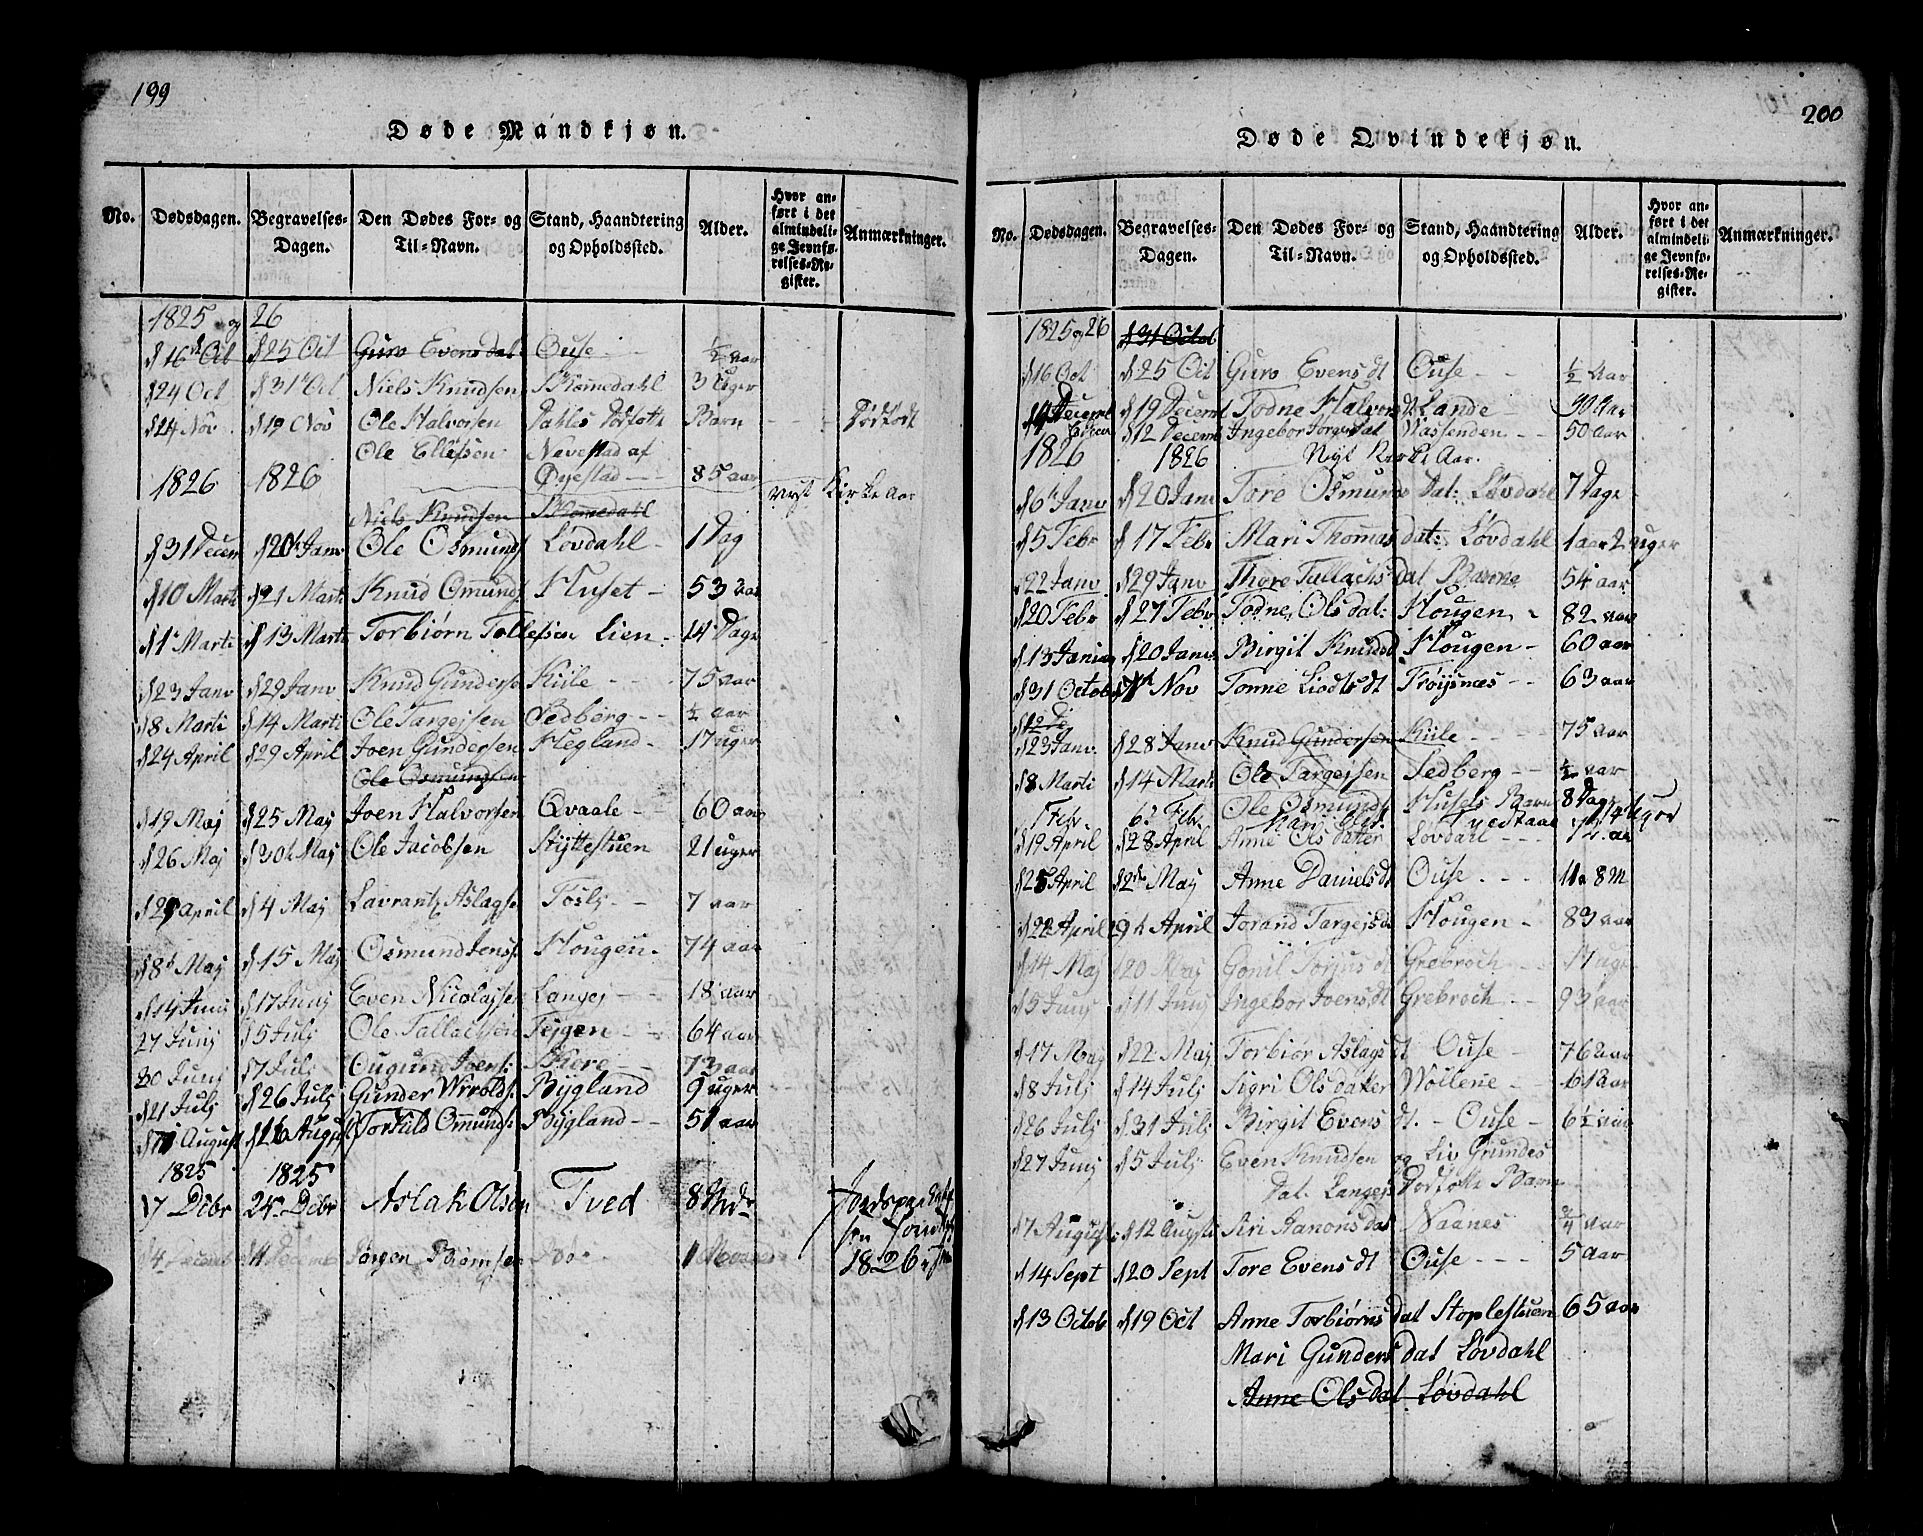 199
Døde Mandkjøn.
No. Dødsdagen. Begravelses-Dagen. Den Dødes For- og Til-Navn. Stand, Haandtering og Opholdssted. Alder. Hvor anført i det almindelige Jevnførelses-Register. Anmærkninger.
1825 og 26
d 16 Oct d 25 Oct Guro Evensdat: Ouse ½ aar
d 24 Oct d 31 Oct Niels Knudsen Skomedahl 3 Uger
d 14 Nov d 19 Nov Ole Halvorsen Dahles Barn Dødfødt
Ole Ellefsen Nevestad af
1826 1826 Øyestad 85 aar
nyt Kirke Aar
Niels Knudsen Skomedahl
d 31 Decem d 20 Janv Ole Osmunds Løvdahl 1 Dag
d 10 Marti d 21 Marti Knud Omunds Huset 53 aar
d 1 Marti d 13 Marti Torbiørn Tollefsen Lien 14 Dage
d 23 Janv d 29 Janv Knud Gunderse Kiile 75 aar
d 8 Marti d 14 Marti Ole Targejsen Sedberg ½ aar
d 24 April d 29 April Joen Gundersen Hegland 17 uger
Ole Osmundsen
d 19 Maj d 25 Maj Joen Halvorsen Qvaale 60 aar
d 26 Maj d 30 Maj Ole Jacobsen Styttestuen 21 uger
d 29 April d 4 Maj Lavrantz Aslagse 7 aar
d 8 Maj d 15 Maj Osmund Jenss: Hougen 74 aar
d 14 Junj d 17 Junj Even Nicolajsen Langej 18 aar
27 Junj d 5 Julj Ole Tallachsen Tejgen 64 aar
30 Junj d 7 Julj Ougund Joens: Skere 73 aar
d 21 Julj d 26 Julj Gunder Wrolds: Bygland 9 uger
August d 16 August Torkild Omunds: Bygland 51 aar
1825 1825
17 Dcbr 24 Dcbr Aslak Olsen Tved 8
4 Decemb 11 Decemb Jørgen Biørnsen Bøe 1
1826
200
Døde Qvindekjøn.
No. Dødsdagen. Begravelses-Dagen. Den Dødes For- og Til-Navn. Stand, Haandtering og Opholdssted. Alder. Hvor anført i det almindelige Jevnførelses-Register. Anmærkninger.
1825 og 26 d 31 Octob
d 16 Oct d 25 Oct Guro Evensdt Ouse ½ Aar
Deceml d 19 Deceml Todne Halvorsdt Lande 90 Aar
d 12 Decemb Ingebor Jørgensdat Nassenden 50 aar
1826 1826 Nyt Kirke Aar.
d 6 Janv d 20 Janv Tore Osmunds Dat: Løvdahl 7 Dage
d 5 Febr d 17 Febr Mari Thomas dat: Løvdahl 1 aar 2 uger
d 22 Janv d 29 Janv Thore Tallachs dat 54 aar
d 20 Febr d 27 Febr Todne Olsdat: Hougen 82 aar
d 13 Janv d 20 Janv Birgit Knudsd Hougen 60 aar
d 31 Octob Nov Tonne Liodtsdt Frøysnæs 63 aar
d 23 Janv. d 28 Janv Knud Gundersen Kiile 75 aar
d 8 Marti d 14 Marti Ole Targejsen Sedberg ½ aar
1 Febr 6 Febr Ole Osmunds Husets Barn 8 Dage
d 19 April d 28 April Anne Olsdatter Løvdahl
d 25 April d 2 Maj Anne Danielsdt Ouse 11a 8 M
d 22 April 29 April Jorand Targejsd Hougen 83 aar
d 14 Maj d 20 Maj Gonil Torjusdt Grebroch 17 uger
d 5 Junj d 11 Junj Ingebor Joensdt Grebroch 93 aar
d 17 Maj d 22 Maj Torbiør Aslagsdt Ouse 76 aar
d 8 Julj d 14 Julj Sigri Olsdatter 61 aar
d 26 Julj d 31 Julj Birgit Evensdt. Ouse 6½ aar
d 27 Junj d 5 Julj Even Knudsen og Liv Grundes
Dat. Langejs Dødfødte Barn
d 7 August d 12 August Siri Aanonsdat Naanes ¾ aar
d 14 Sept d 20 Sept Tore Evensdt Ouse 5 aar
d 13 Octob d 19 Oct Anne Torbiørnsdat Stoplestuen 65 aar
Mari Gundersdat Løvdahl
Anne Olsdat Løvdahl